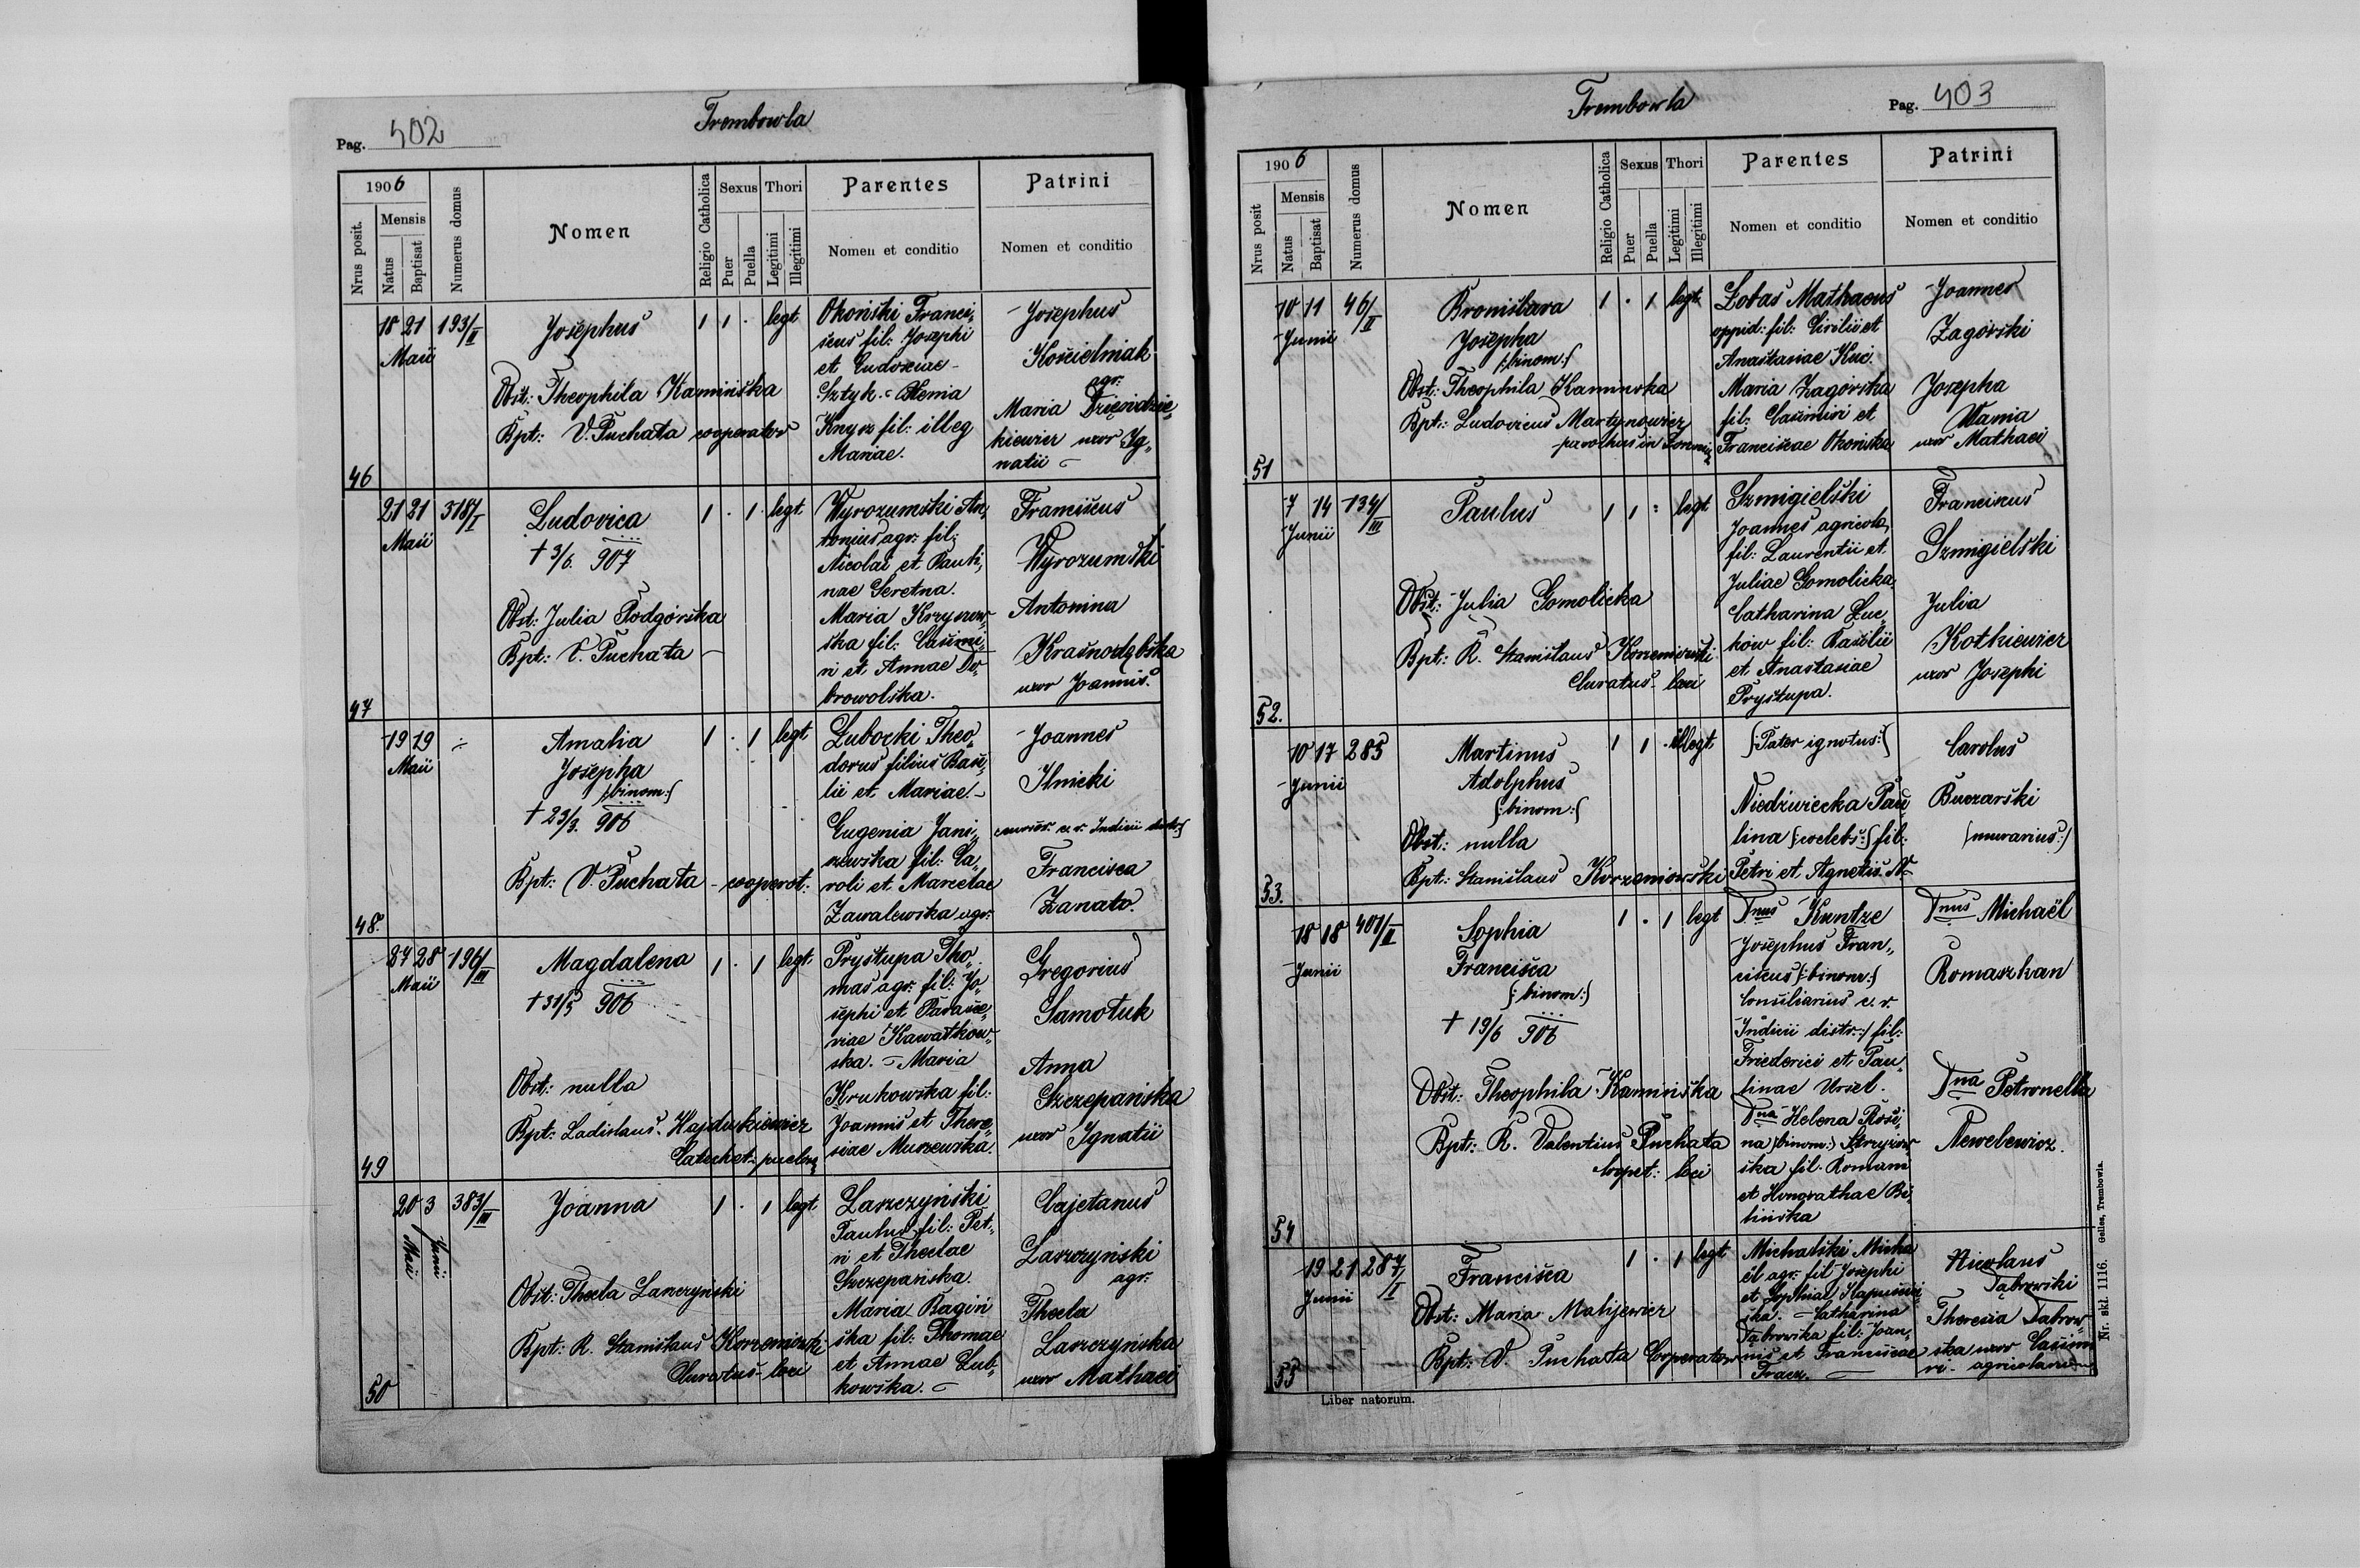 Pag. 402
Trembowla
1906
Nrus posit.
Mensis
Natus
Baptisat
Numerus domus
Nomen
Religio Catholica
Sexus
Puer
Puella
Thori
Legitimi
Illegitimi
Parentes
Nomen et conditio
Patrini
Nomen et conditio
46
18 21 193/II
Maii
Josephus
Obst: Theophila Kamińska
Bpt: V. Puchata cooperator
1 1 · legt
Okoński Franci„
scus fil: Josephi
et Eudoxiae
Sztyk. - Xenia
Knysz fil: illeg
Mariae.
Josephus
Kościelniak
agr:
Maria Dzięsidzie„
kiewicz uxor Ig„
natii
47
21 21 318/I
Maii
Ludovica
+ 3/6. 907
Obst: Julia Podgórska
Bpt: V. Puchata
1 · 1 legt
Wyrozumski An„
tonius agr: fil:
Nicolai et Pauli„
nae Seretna.
Maria Krzyszow„
ska fil: Casimi„
ri et Annae Do„
browolska.
Franciscus
Wyrozumski
Antonina
Krasnodębska
uxor Joannis.
48.
19 19 ÷
Maii
Amalia
Josepha
(:binom:)
+ 23/3. 906
Bpt: V. Puchata - cooperat:
1 · 1 legt
Lubocki Theo„
dorus filius Basi„
lii et Mariae. -
Eugenia Jani„
szewska fil: Ca„
roli et Marcelae
Zawalewska agr:
Joannes
Ilnicki
c. r. Indicii
Francisca
Zanato.
49
27 28 196/III
Maii
Magdalena
+ 31/5 906
Obst: nulla
Bpt: Ladislaus Hajdukiewicz
Catechet: puellar
1 · 1 legt.
Prystupa Tho„
mas agr: fil: Jo„
sephi et Parasce„
viae Kawatkow„
ska. - Maria
Krukowska fil:
Joannis et There„
siae Muszewska.
Gregorius
Samotuk
Anna
Szczepańska
uxor Ignatii
50
20 3 383/III
Maii Junii
Joanna
Obst: Thecla Laszczyński
Bpt: R. Stanislaus Korzeniowski
Curatus loci
1 · 1 legt
Laszczyński
Paulus fil: Pet„
ri et Theclae
Szczepańska.
Maria Bagiń„
ska fil: Thomae
et Annae Lub„
kowska.
Cajetanus
Laszczyński
agr:
Thecla
Laszczyńska
uxor Mathaei
Trembowla
Pag. 403
1906
Nrus posit
Mensis
Natus
Baptisat
Numerus domus
Nomen
Religio Catholica
Sexus
Puer
Puella
Thori
Legitimi
Illegitimi
Parentes
Nomen et conditio
Patrini
Nomen et conditio
51
10 11 46/II
Junii
Bronislava
Josepha
(:binom:)
Obst: Theophila Kaminska
Bpt: Ludovicus Martynowicz
parochus in
1 · 1 legt.
Lobas Mathaeus
oppid: fil: Cirilii et
Anastasiae Kuc.
Maria Zagórska
fil: Casimiri et
Franciscae Okońska
Joannes
Zagórski
Josepha
Wania
uxor Mathaei
52.
7 14 134/III
Junii
Paulus
Obst: Julia Gomolicka
Bpt: R. Stanislaus Korzeniowski
Curatus loci
1 1 · legt
Szmigielski
Joannes agricola,
fil: Laurentii et
Juliae Gomolicka.
Catharina Luc„
ków fil: Basilii
et Anastasiae
Prystupa.
Franciscus
Szmigielski
Julia
Kotkiewicz
uxor Josephi
53.
10 17 285
Junii
Martinus
Adolphus
(:binom:)
Obst: nulla
Bpt: Stanislaus Korzeniowski
1 1 · illegt
(:Pater ignotus:)
Niedźwiecka Pau
lina (:coelebs:) fil:
Petri et Agnetis. N
Carolus
Buczarski
(murarius:)
54
18 18 401/II
Junii
Sophia
Francisca
(:binom:)
+ 19/6 906
Obst: Theophila Kamińska
Bpt: R. Valentius Puchata
Coopet: loci
1 · 1 legt
Dnus Kuntze
Josephus Fran„
ciscus (:binom:)
Consiliarius c. r.
Indicii distr:) fil:
Friederici et Pau„
linae Ursel.
Dna Helena Rosi„
na (binom:) Strzyżow
ska fil. Romani
et Honorathae Bi„
lińska
Dnus Michaël
Romaszkan
Dna Petronella
Newelewicz.
55
19 21 287/I
Junii
Francisca
Obst: Maria Matijewicz
Bpt: V. Puchata Cooperator
1 · 1 legt
Michalski Micha
ël agr: fil Josephi
et Sophiae
ska. - Catharina
Dąbrowska fil: Joan„
nis et Franciscae
Tracz.
Nicolaus
Dąbrowski
Theresia Dąbrow„
ska uxor Casimi
ri - agricolarum
Liber natorum.
Nr. skl. 1116. Gelles, Trembowla.